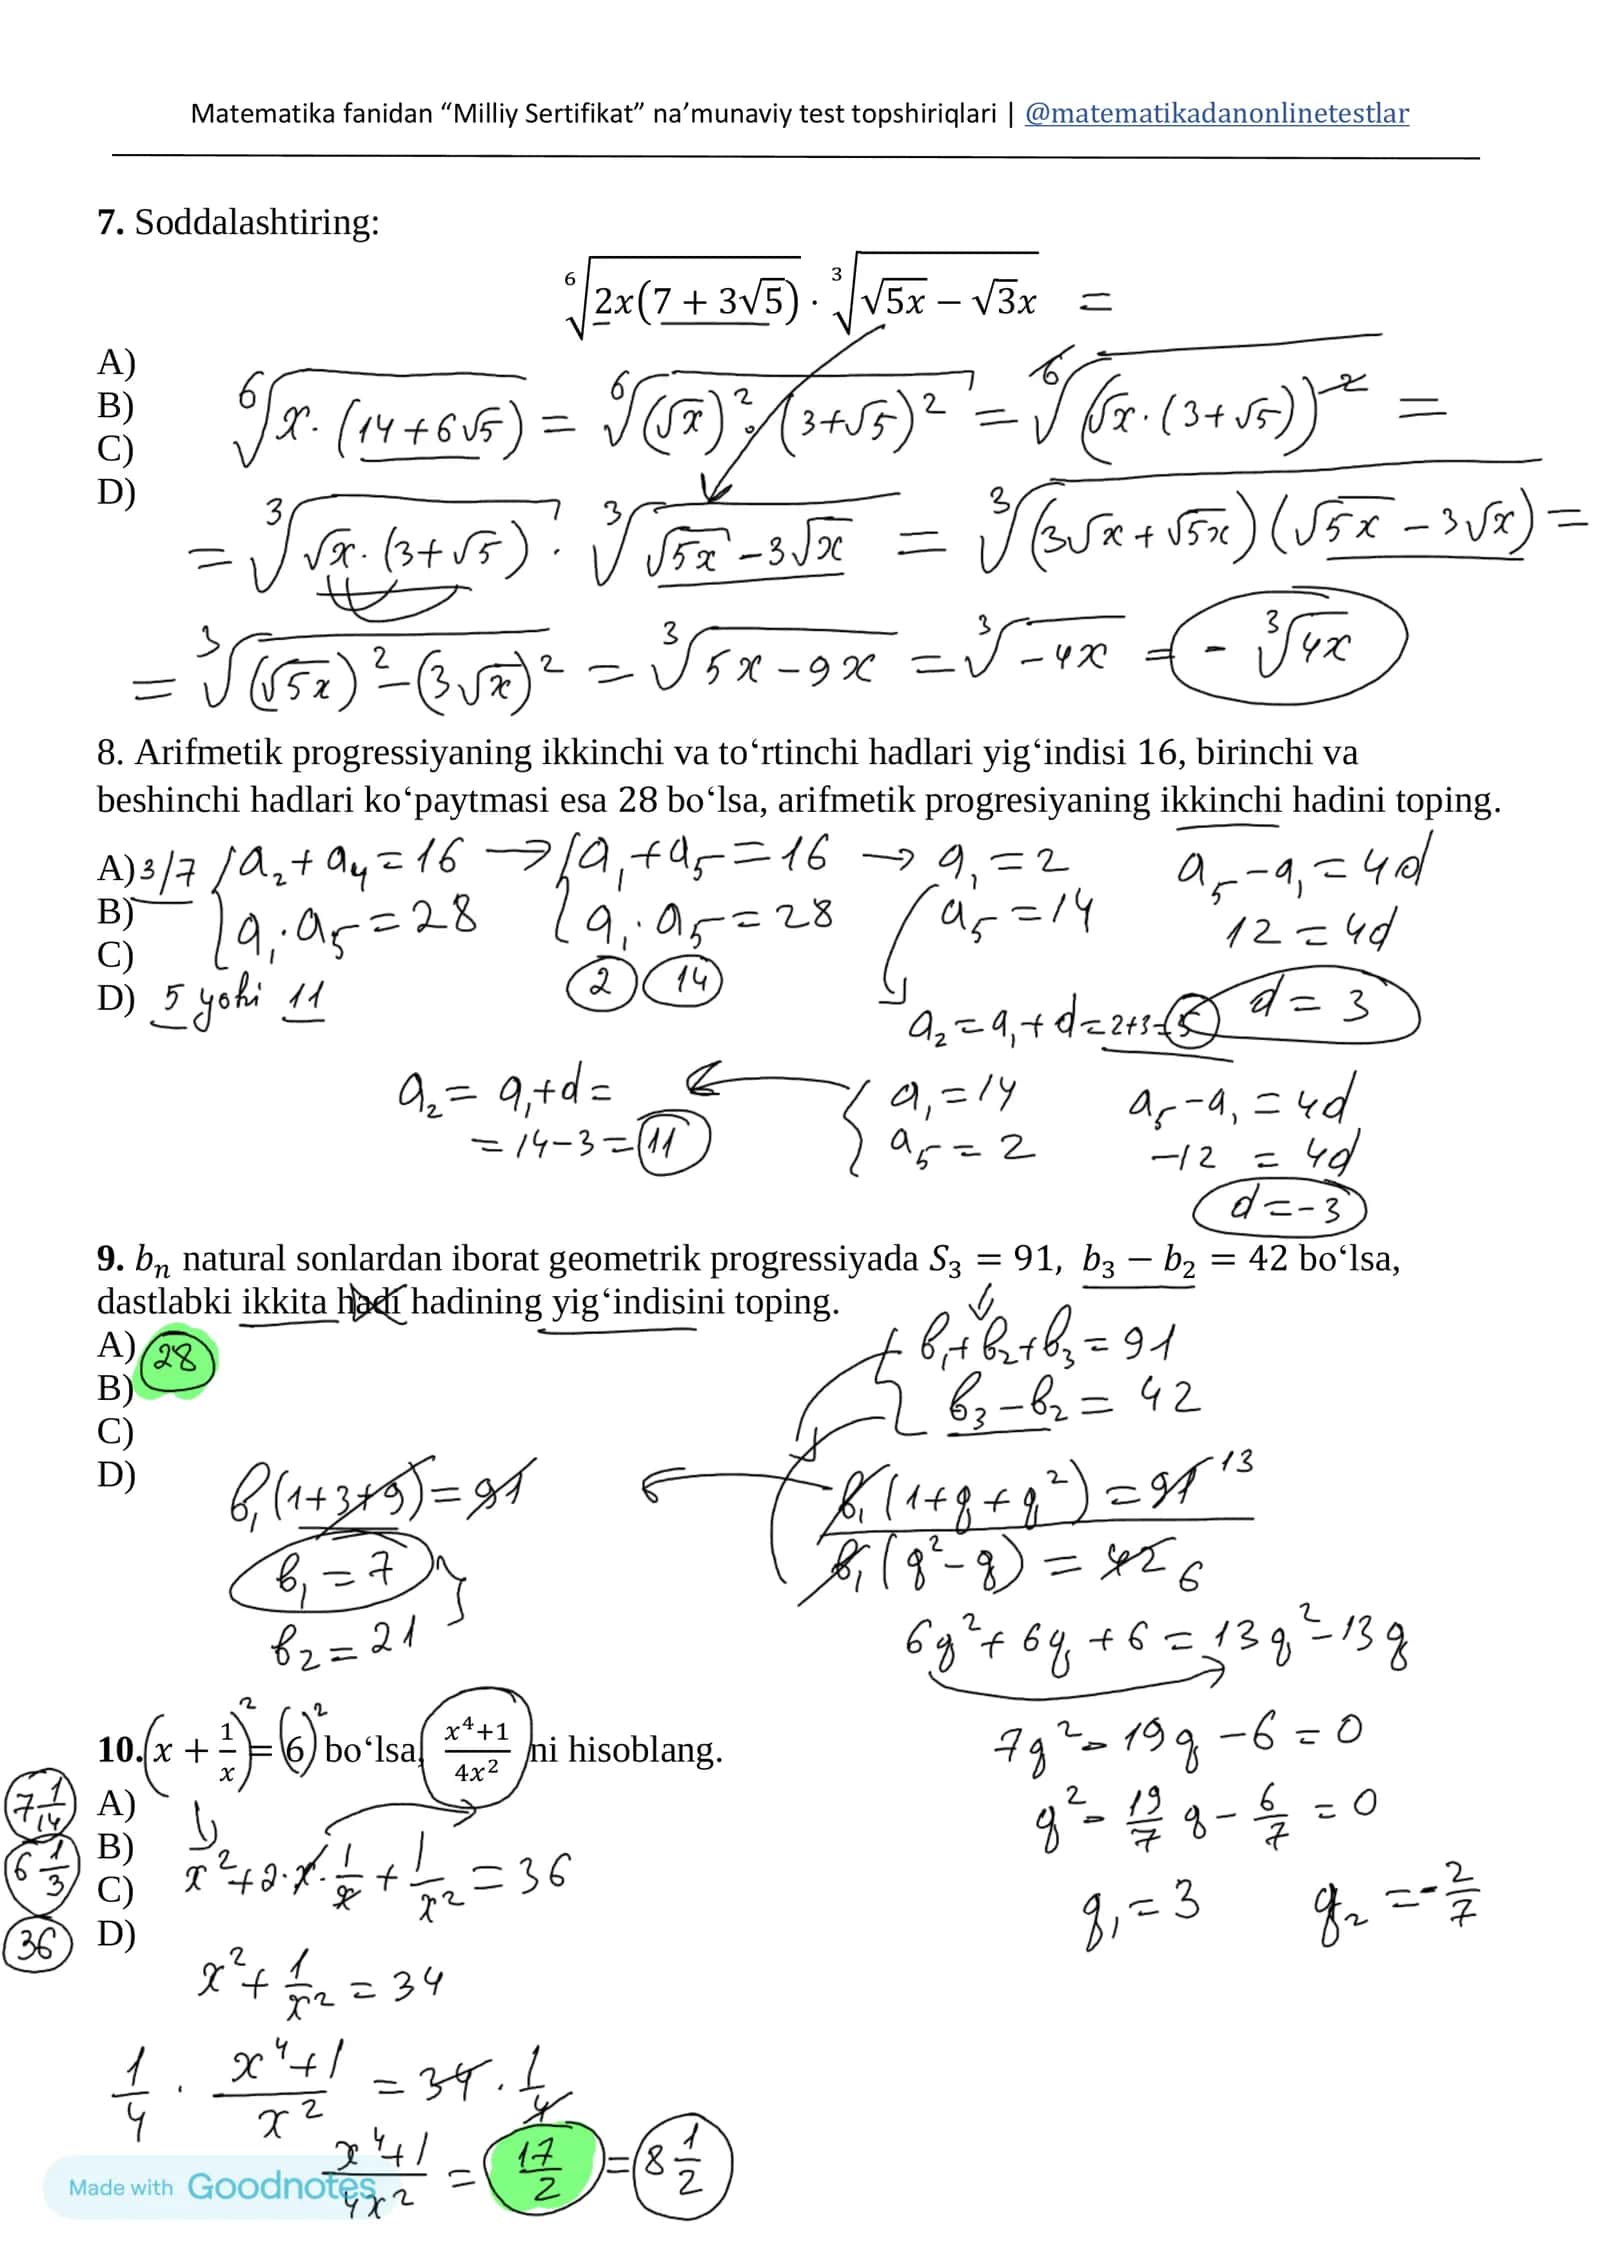 Matematika fanidan “Milliy Sertifikat” na’munaviy test topshiriqlari | @matematikadanonlinetestlar
7. Soddalashtiring:
⁶√(2x(7 + 3√5)) · ³√(√5x − √3x) =
A)
B)
C)
D)
⁶√(x · (14 + 6√5)) = ⁶√((√x)² · (3+√5)²) = ⁶√((√x · (3+√5))²) =
= ³√(√x · (3+√5)) · ³√(√5x − 3√x) = ³√((3√x + √5x)(√5x − 3√x)) =
= ³√((√5x)² − (3√x)²) = ³√(5x − 9x) = ³√(−4x) = − ³√4x
8. Arifmetik progressiyaning ikkinchi va to‘rtinchi hadlari yig‘indisi 16, birinchi va
beshinchi hadlari ko‘paytmasi esa 28 bo‘lsa, arifmetik progresiyaning ikkinchi hadini toping.
A) 3/7 { a₂ + a₄ = 16 → { a₁ + a₅ = 16 → a₁ = 2 a₅ − a₁ = 4d
B) a₁ · a₅ = 28 a₁ · a₅ = 28 a₅ = 14 12 = 4d
C) 2 14
D) 5 yoki 11 a₂ = a₁ + d = 2+3 = 5 d = 3
a₂ = a₁ + d = { a₁ = 14 a₅ − a₁ = 4d
= 14 − 3 = 11 a₅ = 2 −12 = 4d
d = −3
9. bₙ natural sonlardan iborat geometrik progressiyada S₃ = 91, b₃ − b₂ = 42 bo‘lsa,
dastlabki ikkita hadi hadining yig‘indisini toping.
A) 28 { b₁ + b₂ + b₃ = 91
B) b₃ − b₂ = 42
C)
D)
b₁(1+3+9) = 91 b₁(1 + q + q²) = 91 13
b₁ = 7 b₁(q² − q) = 42 6
b₂ = 21 6q² + 6q + 6 = 13q² − 13q
10. (x + 1/x)² = (6)² bo‘lsa, (x⁴+1)/(4x²) ni hisoblang.
7q² − 19q − 6 = 0
7 1/14 A)
q² − 19/7 q − 6/7 = 0
6 1/3 B)
C) x² + 2 · x · 1/x + 1/x² = 36
36 D) q₁ = 3 q₂ = −2/7
x² + 1/x² = 34
1/4 · (x⁴+1)/x² = 34 · 1/4
(x⁴+1)/(4x²) = 17/2 = 8 1/2
Made with Goodnotes